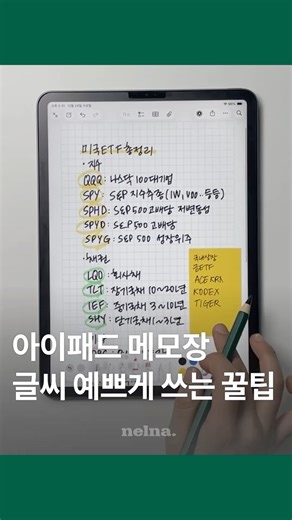 미국ETF총정리
·지수
QQQ : 나스닥 100대기업
SPY : S&P 지수추종 (IVV, VOO..등등)
SPHD : S&P 500 고배당 저변동성
SPYD : S&P 500 고배당
SPYG : S&P 500 성장위주
·채권
LQD : 회사채
TLT : 장기국채 10~20년
IEF : 중기국채 3~10년
SHY : 단기국채 1~3년
국내상장
금ETF
ACE KRX
KODEX
TIGER
아이패드 메모장
글씨 예쁘게 쓰는 꿀팁
nelna.